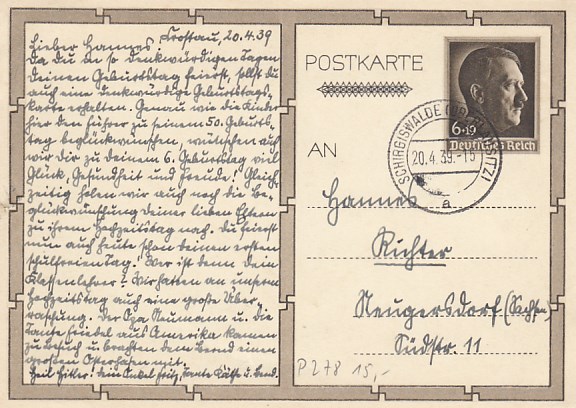 Crostau, 20.4.39
Lieber Hannes,
Da Du an so denkwürdigen Tagen
Deinen Geburtstag feierst, sollst du
auch eine denkwürdige Geburtstags-
karte erhalten. Genau wie die Kinder
hier den Führer zu seinem 50. Geburts-
tag beglückwünschen, wünschen auch
wir Dir zu deinem 6. Geburtstag viel
Glück, Gesundheit und Freude! Gleich-
zeitig holen wir auch noch die Be-
glückwünschung deiner lieben Eltern
zu ihrem Hochzeitstag nach. Du feierst
nun auch heute schon deinen ersten
schulfreien Tag! Wer ist denn Dein
Klassenlehrer? Wir hatten an unserm
Hochzeitstag auch eine große Über-
raschung. Der Opa Neumann u. die
Tante Friebel aus Amerika kamen
zu Besuch u. brachten dem Bernd einen
großen Osterhasen mit.
Heil Hitler! Dein Onkel Fritz, Tante Käthe u. Bernd.
POSTKARTE
6+19
Deutsches Reich
SCHIRGISWALDE
20.4.39.-15
a
AN
Hannes
Richter
Neugersdorf (Sachsen)
Südstr. 11
P278 15,-